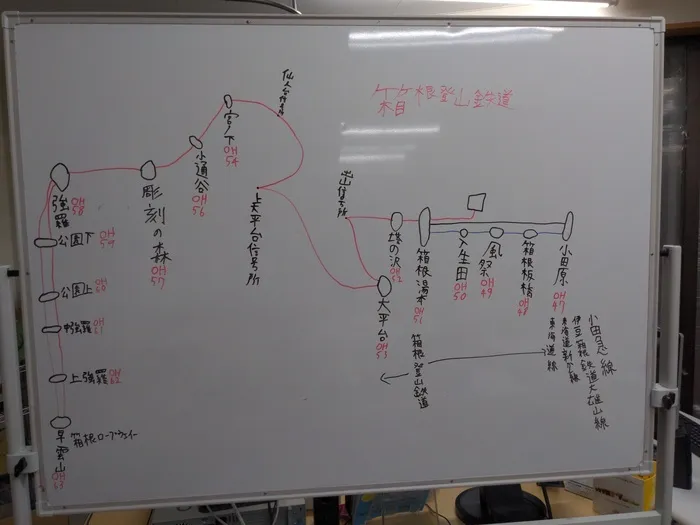 箱根登山鉄道
仙人台信号所
宮ノ下
OH
54
小涌谷
OH
56
彫刻の森
OH
57
強羅
OH
58
公園下
OH
59
公園上
OH
60
中強羅
OH
61
上強羅
OH
62
早雲山
OH
63
箱根ロープウェイ
上大平台信号所
出山信号所
大平台
OH
53
塔の沢
OH
52
箱根湯本
OH
51
入生田
OH
50
風祭
OH
49
箱根板橋
OH
48
小田原
OH
47
箱根登山鉄道
小田急線
伊豆箱根鉄道大雄山線
東海道新幹線
東海道線